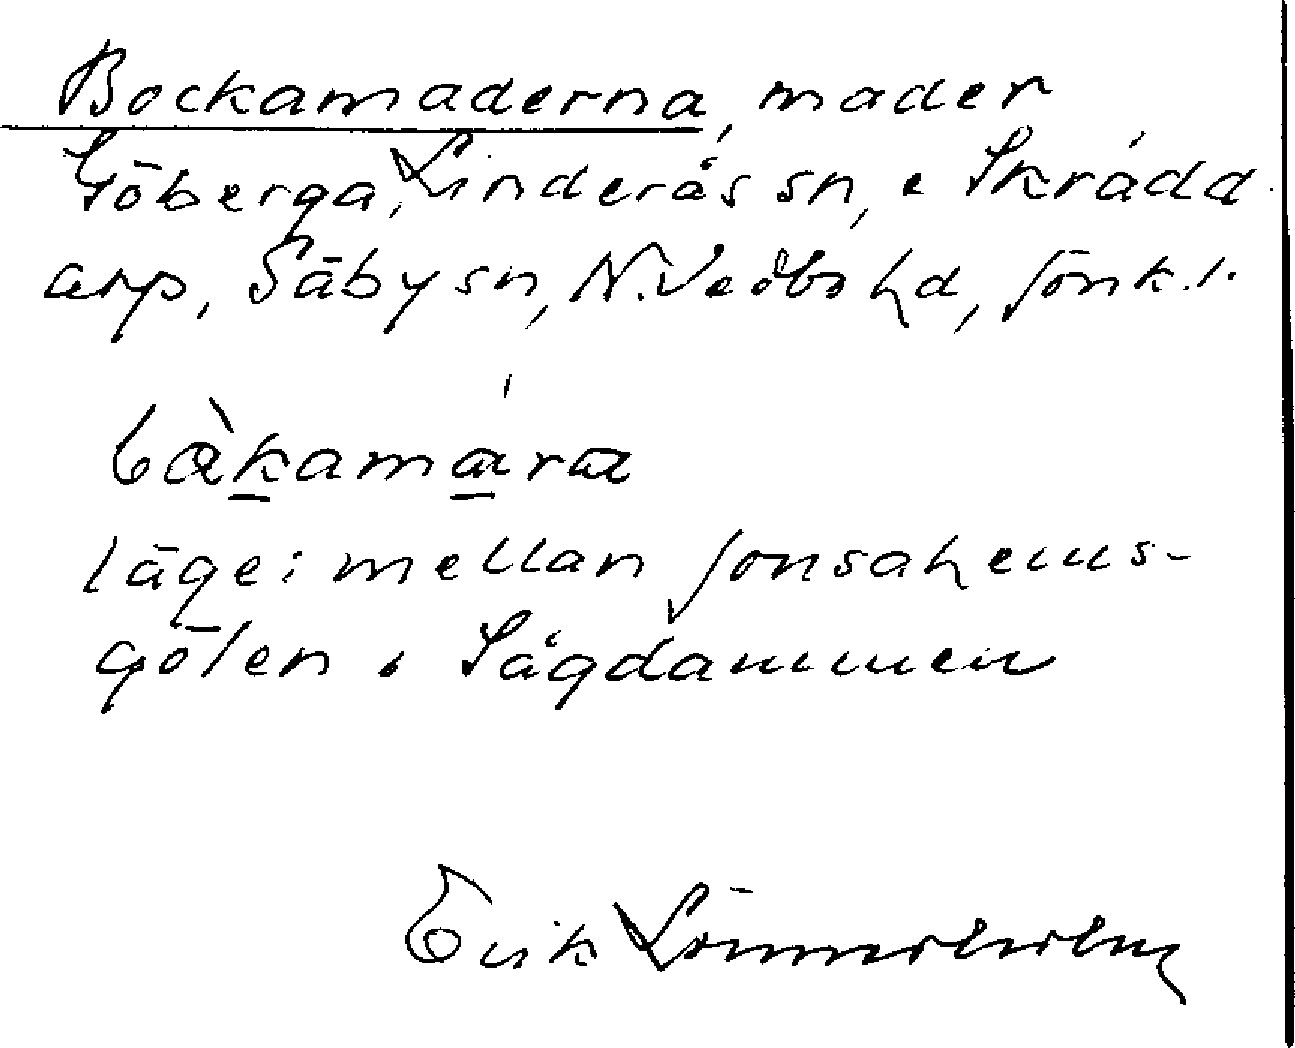 Bockamaderna, mader
Göberga, Linderås sn, o Skrädd
arp, Säby sn, N. Vedbo hd, Jönk. l.
bàkamara
läge: mellan Jonsahems-
gölen o Sågdammen
Erik Lönnerholm